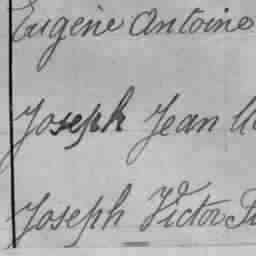 Eugène Antoine
Joseph Jean
Joseph Victor